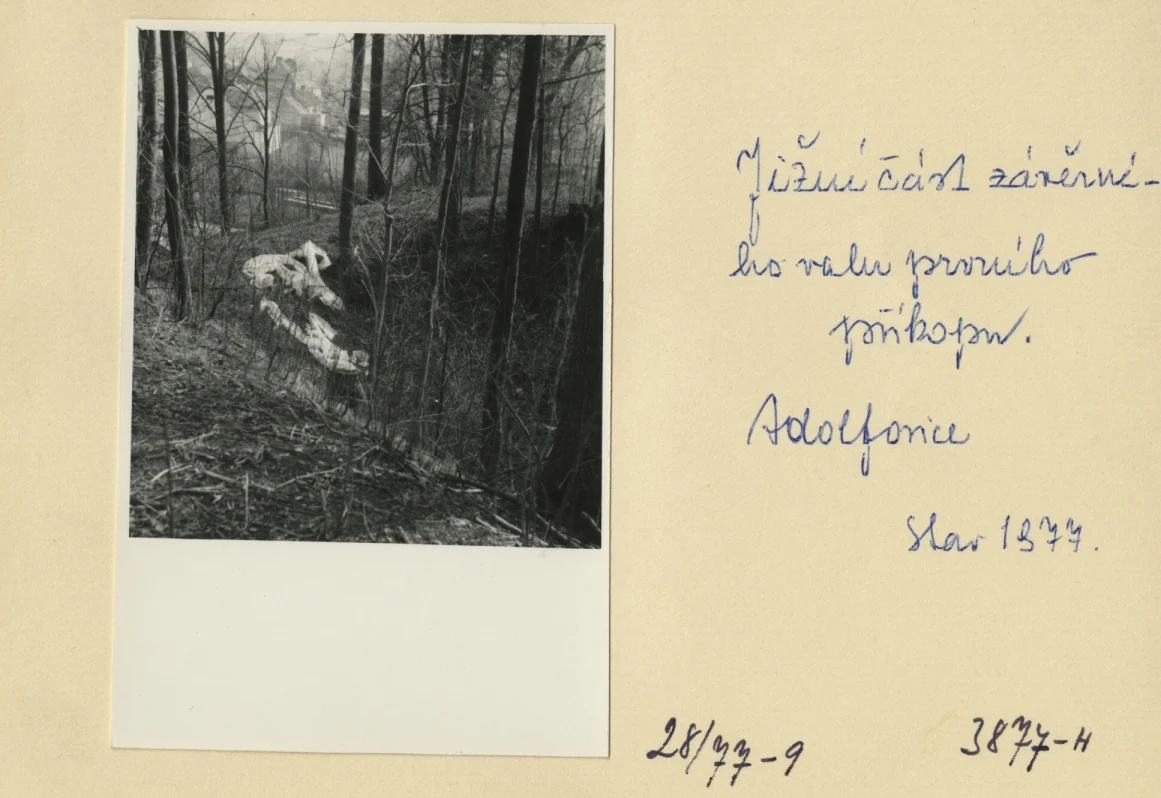 Jižní část závěrné-
ho valu prvního
příkopu.
Adolfovice
Stav 1977.
28/77-9
3877-H